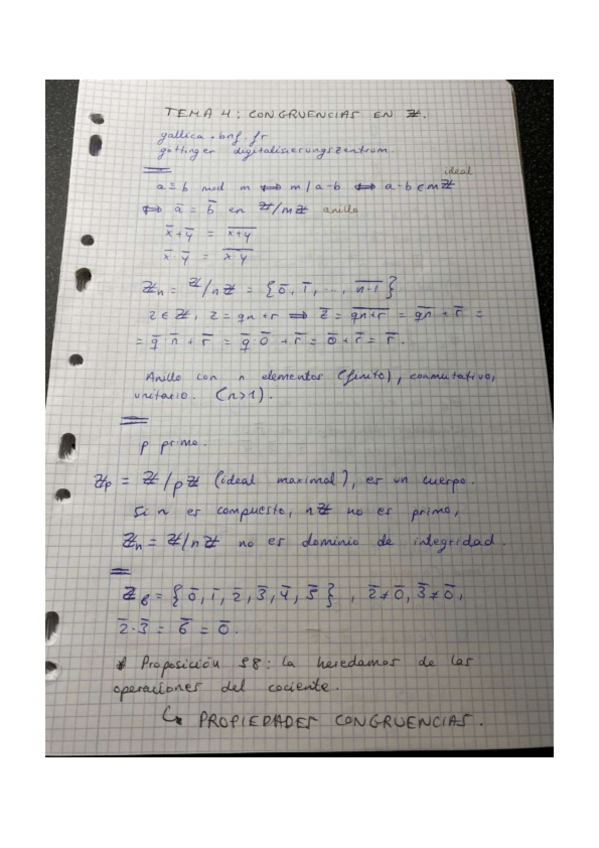 TEMA 4: CONGRUENCIAS EN ℤ.
gallica.bnf.fr
gottinger digitalisierungszentrom.
ideal
a ≡ b mod m ⟺ m | a-b ⟺ a-b ∈ mℤ
⟺ a̅ = b̅ en ℤ/mℤ anillo
x̅ + y̅ = \overline{x+y}
x̅ · y̅ = \overline{x·y}
ℤn = ℤ/nℤ = {0̅, 1̅, ..., \overline{n-1}}
z ∈ ℤ, z = qn+r ⟹ z̅ = \overline{qn+r} = \overline{qn} + r̅ =
= q̅ · n̅ + r̅ = q̅ · 0̅ + r̅ = 0̅ + r̅ = r̅.
Anillo con n elementos (finito), conmutativo,
unitario. (n>1).
p primo.
ℤp = ℤ/pℤ (ideal maximal), es un cuerpo.
Si n es compuesto, nℤ no es primo,
ℤn = ℤ/nℤ no es dominio de integridad.
ℤ6 = {0̅, 1̅, 2̅, 3̅, 4̅, 5̅}, 2̅ ≠ 0̅, 3̅ ≠ 0̅,
2̅ · 3̅ = 6̅ = 0̅.
* Proposición 58: la heredamos de las
operaciones del cociente.
↳ PROPIEDADES CONGRUENCIAS.